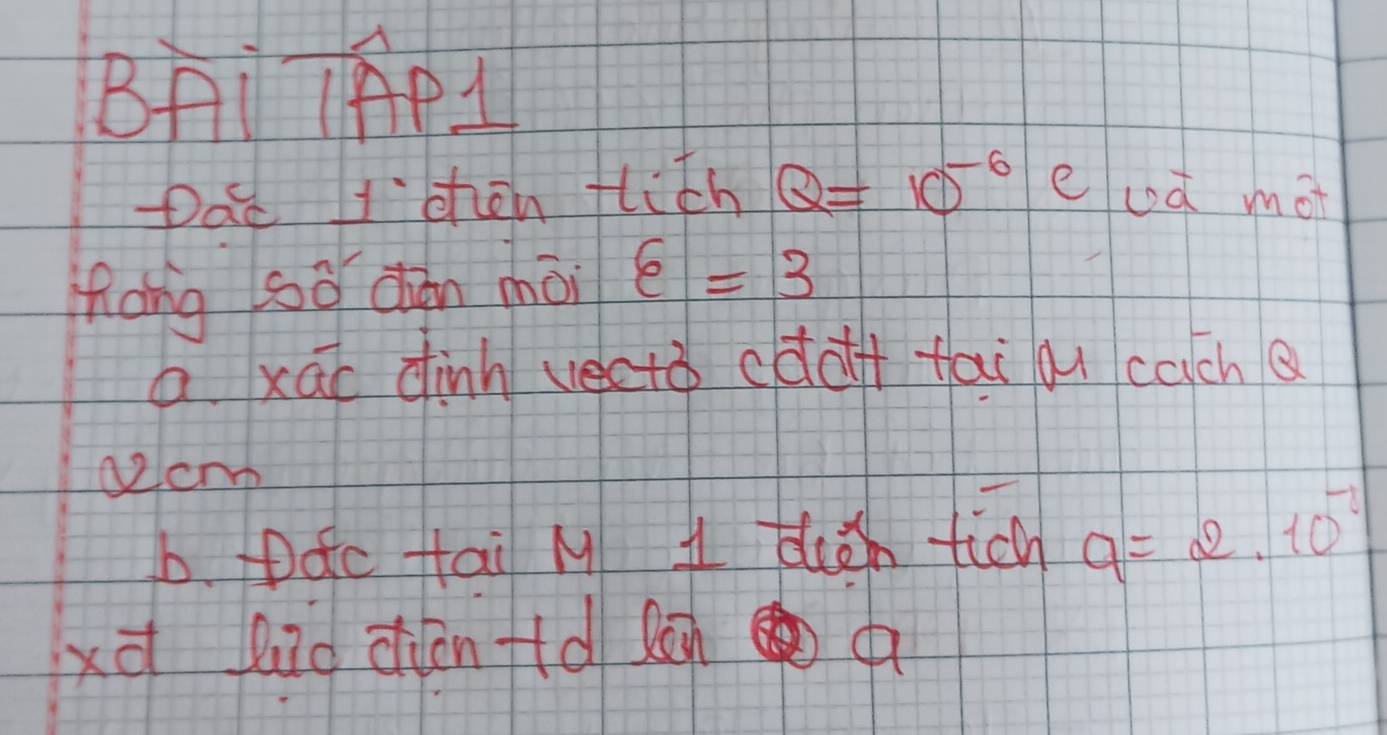 BÀI TÂP1
Đặc 1 điện tích Q= 10⁻⁶ e và một
hằng số điện môi ε = 3
a. xác định vectơ cđđtt tại M cách Q
2cm
b. Đặc tại M 1 điện tích q= 2.10
xđ lực điện td lên q